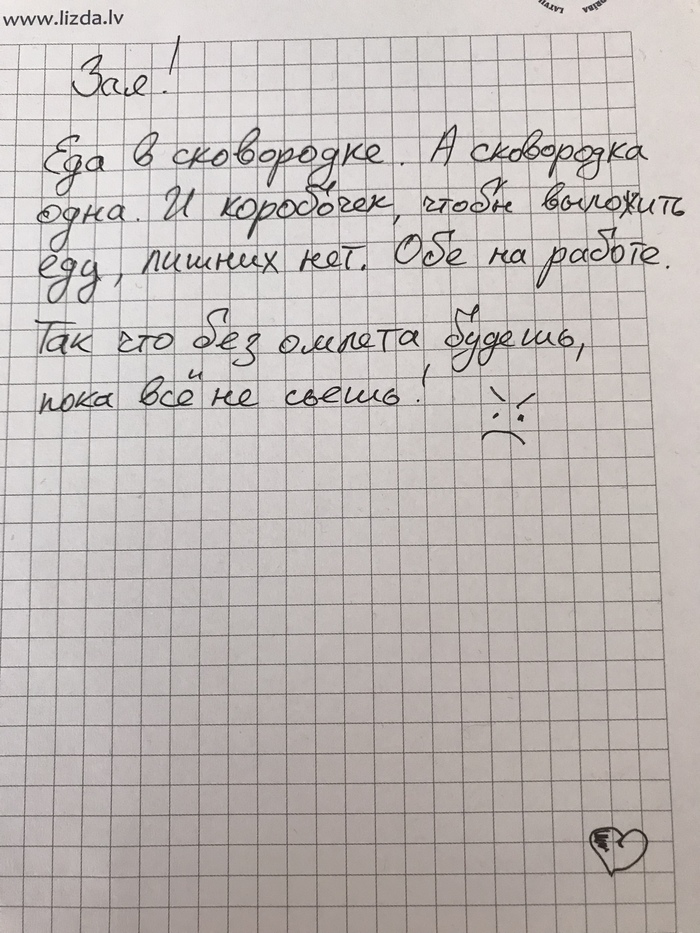 www.lizda.lv
Зая!
Еда в сковородке. А сковородка
одна. И коробочек, чтобы выложить
еду, лишних нет. Обе на работе.
Так что без омлета будешь,
пока всё не съешь!